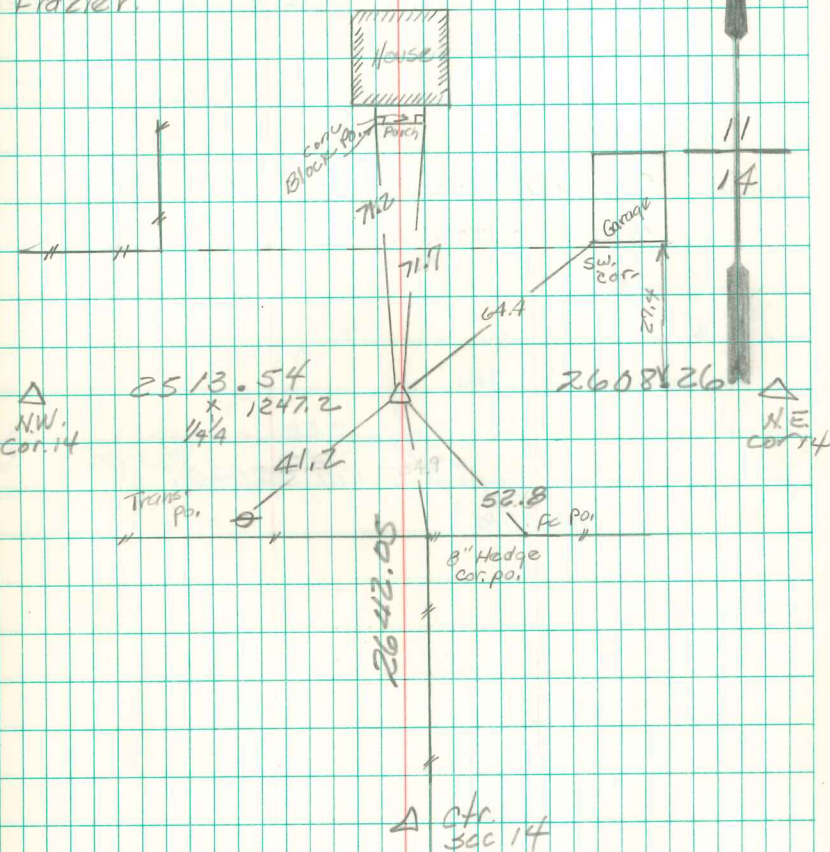 Frazier.
House
Porch
conc
Block po.
11
14
Garage
S.W.
cor.
71.2
71.7
64.4
27.4
2513.54
x 1247.2
1/4 1/4
2608.26
N.W.
Cor. 14
N.E.
Cor 14
41.2
52.8
Trans.
po.
Fc po.
8" Hedge
cor. po.
2642.05
Ctr.
Sec 14